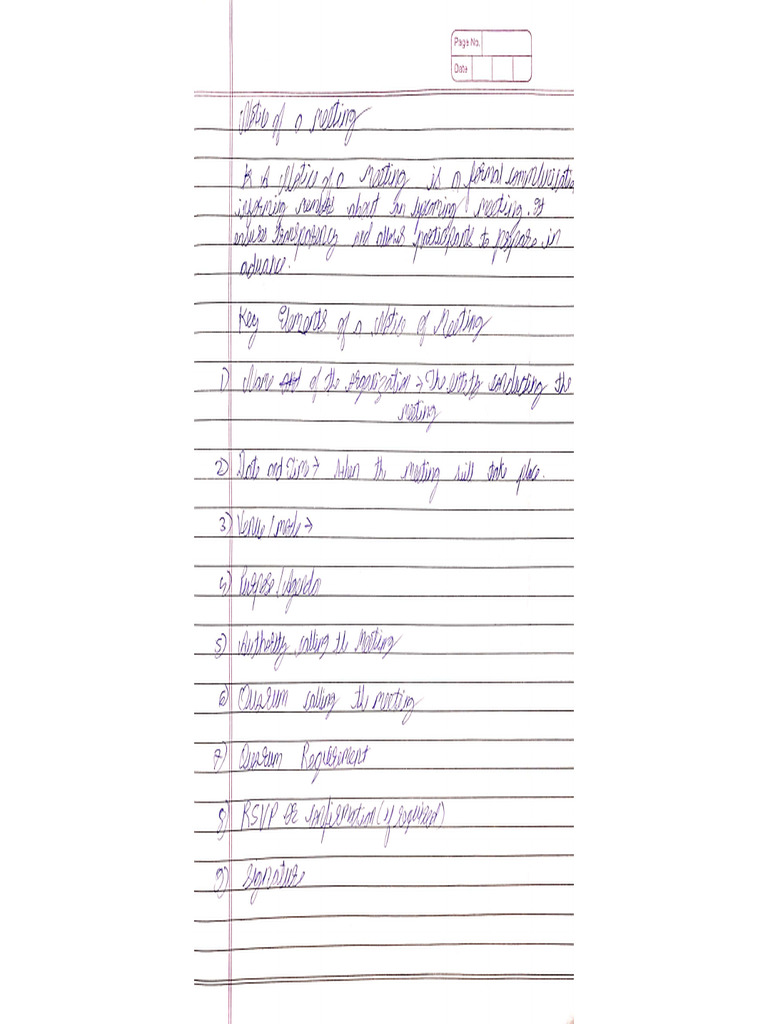 Page No.
Date
Notice of a Meeting
A Notice of a meeting is a formal communication
informing members about an upcoming meeting. It
ensure transparency and allows participants to prepare in
advance.
Key Elements of a Notice of Meeting
1) Name of the organization → The entity conducting the
meeting
2) Date and Time → when the meeting will take place.
3) Venue / mode →
4) Purpose / Agenda
5) Authority calling the Meeting
6) Quorum calling the meeting
7) Quorum Requirement
8) RSVP or confirmation (if required)
9) Signature